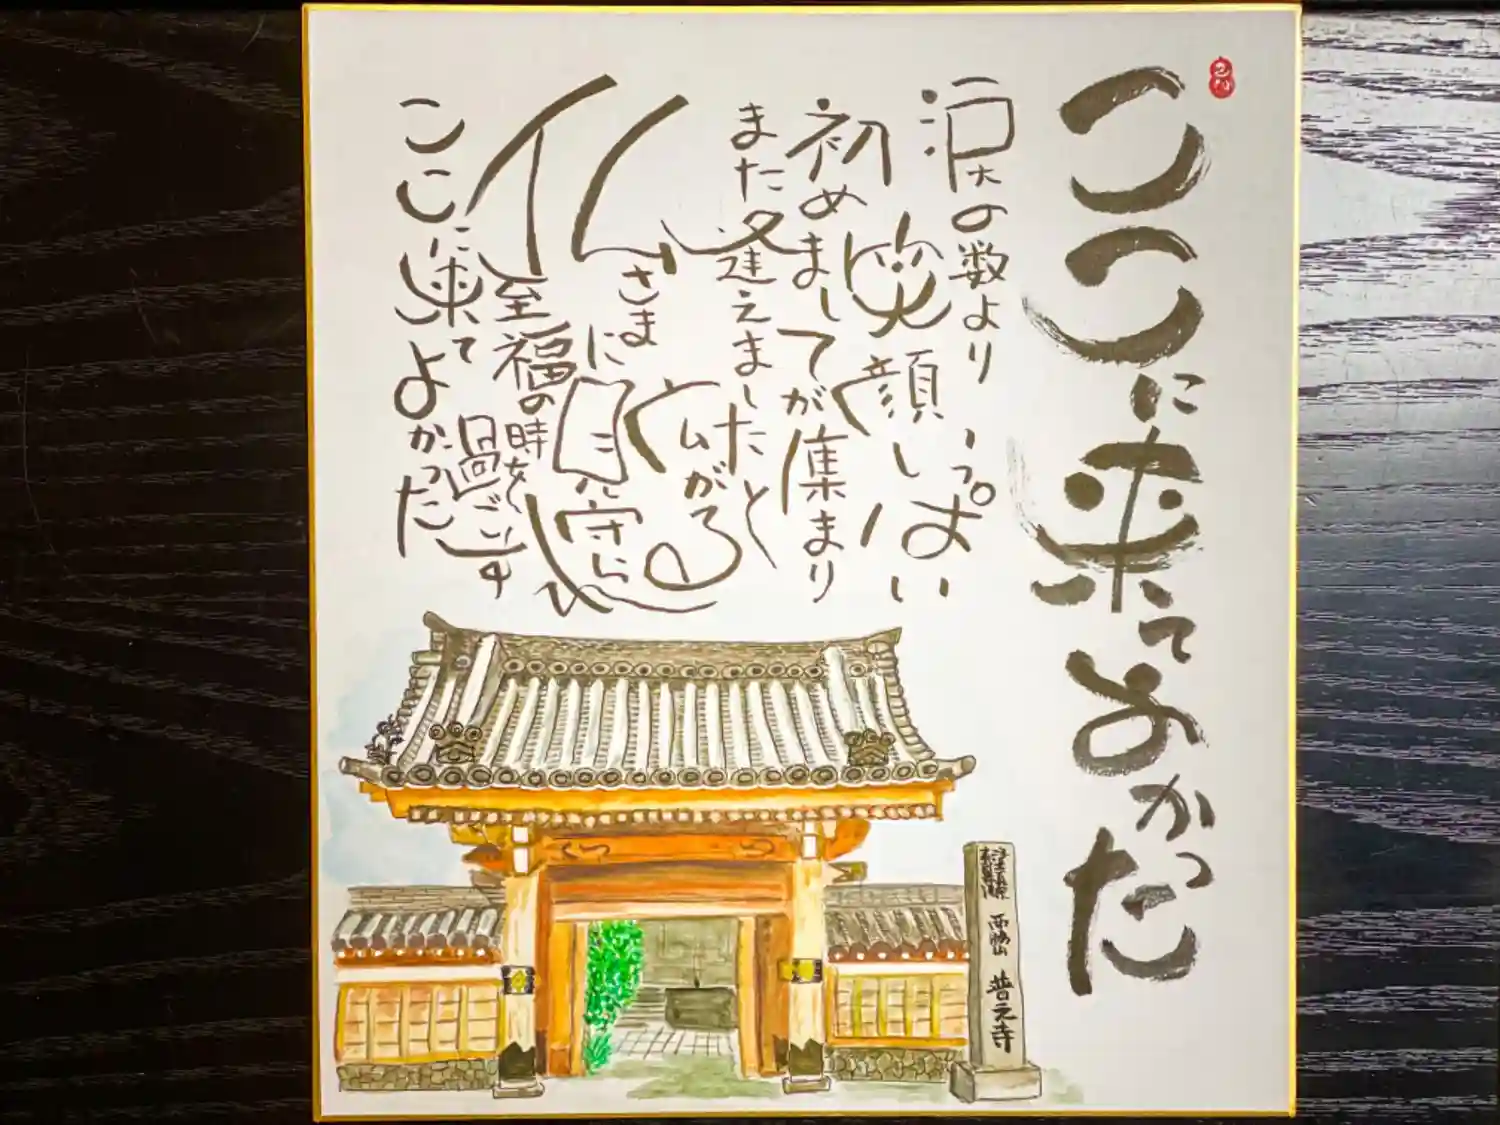 ここに来てよかった
涙の数より
笑顔いっぱい
初めましてが集まり
また逢えましたと
広がる
仏さまに
見守られ
至福の時を
過ごす
ここに来てよかった
普元寺